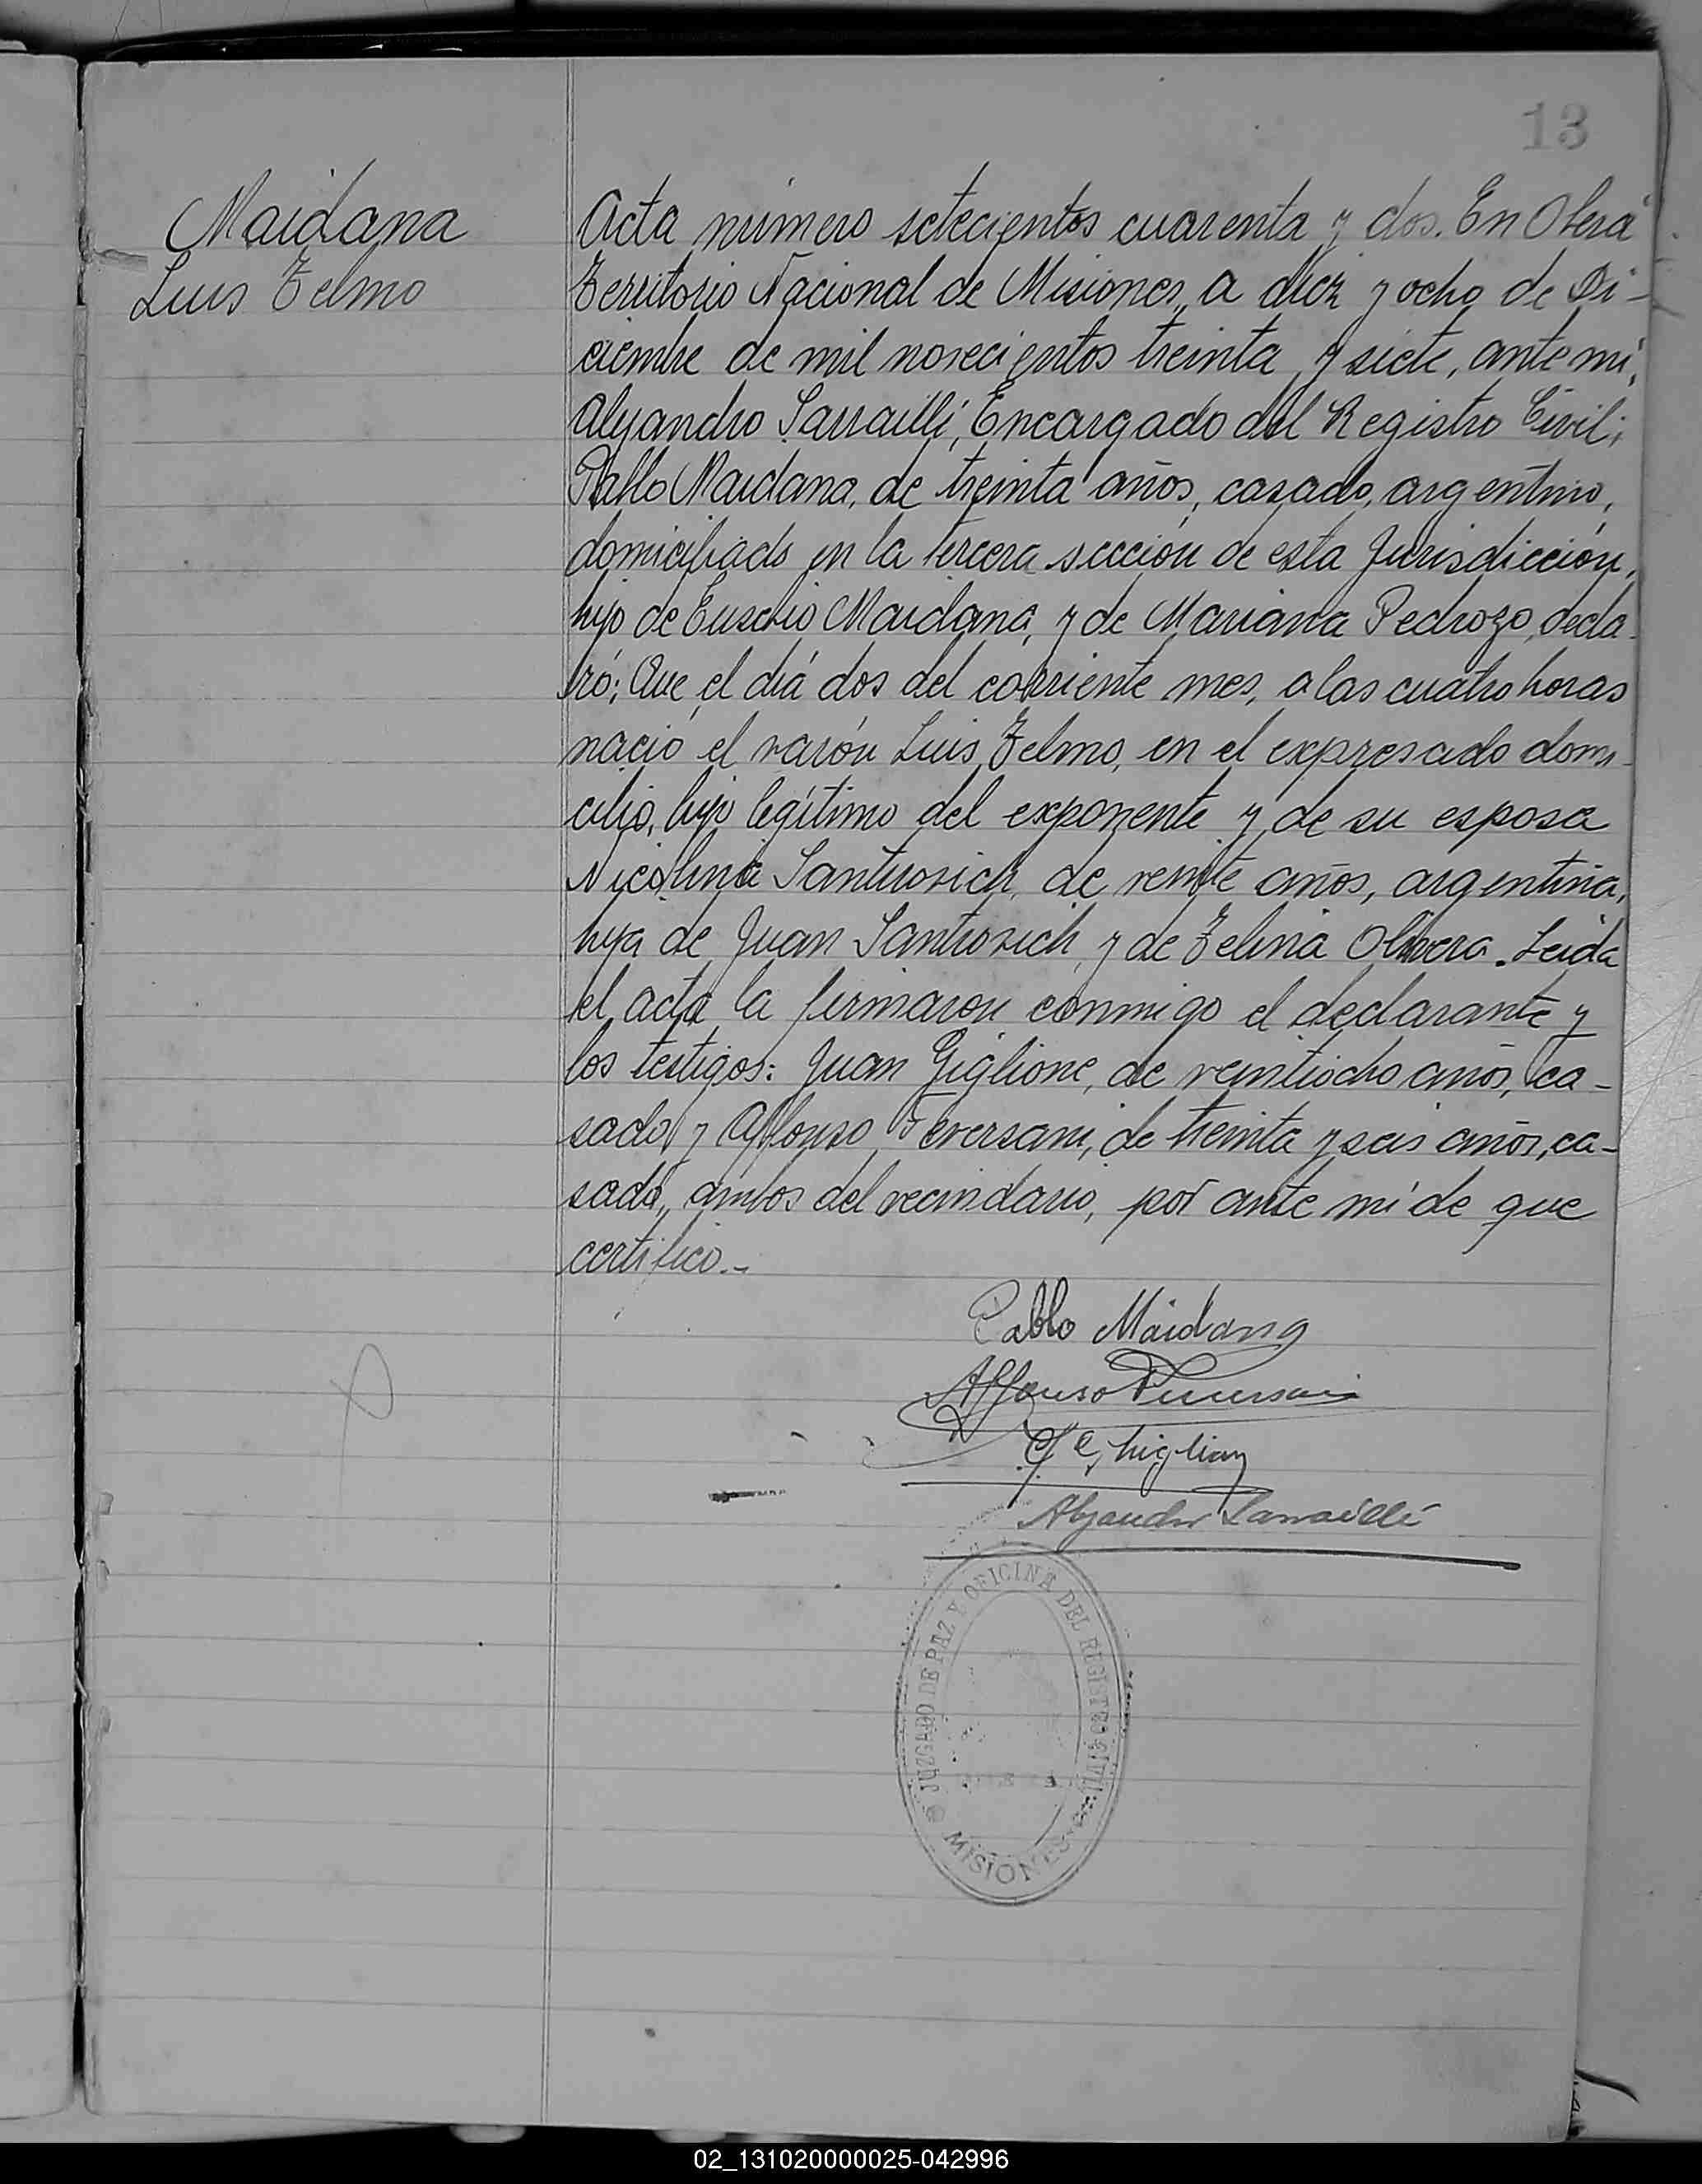 13
Maidana
Luis Telmo
Acta número setecientos cuarenta y dos. En Oberá
Territorio Nacional de Misiones, a diez y ocho de Di-
ciembre de mil novecientos treinta y siete, ante mí,
Alejandro Sarrailli, Encargado del Registro Civil;
Pablo Maidana, de treinta años, casado, argentino,
domiciliado en la tercera sección de esta Jurisdicción,
hijo de Eusebio Maidana, y de Mariana Pedrozo, decla-
ró; Que el día dos del corriente mes, a las cuatro horas
nació el varón Luis Telmo, en el expresado domi-
cilio, hijo legítimo del exponente y de su esposa
Nicolina Santrovich, de veinte años, argentina,
hija de Juan Santrovich, y de Telina Olivera. Leida
el acta la firmaron conmigo el declarante y
los testigos: Juan Giglione, de veintiocho años, ca-
sado, y Alfonso Feversani, de treinta y seis años, ca-
sado, ambos del vecindario, por ante mí de que
certifico.-
Pablo Maidana
Alejandro Sarrailli
JUZGADO DE PAZ Y OFICINA DEL REGISTRO CIVIL
MISIONES
02_131020000025-042996